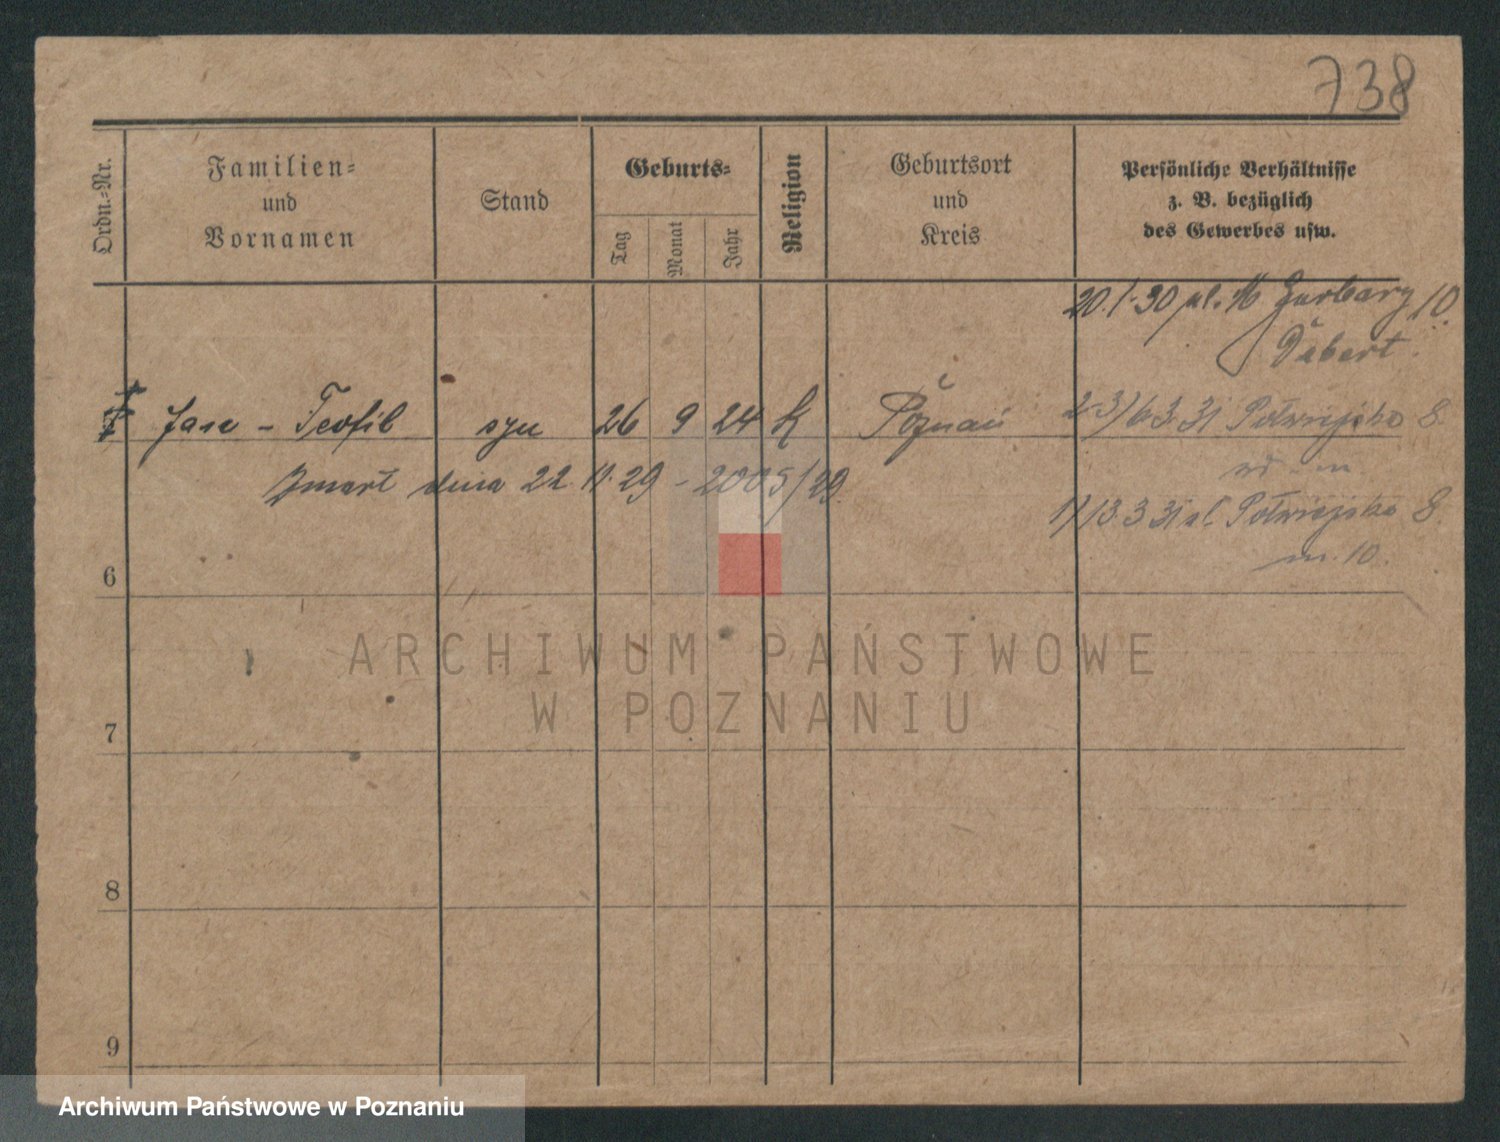 738
Ordn.-Nr.
Familien-
und
Vornamen
Stand
Geburts-
Tag
Monat
Jahr
Religion
Geburtsort
und
Kreis
Persönliche Verhältnisse
z. B. bezüglich
des Gewerbes usw.
20.1.30 Garbary 10
Dabert
Teofil syn 26 9 24 K Poznań 31 Półwiejska 8
Zmarł dnia 22. 11. 29 - 2005/29
13.3 31 Półwiejska 8.
m. 10.
6
7
8
9
ARCHIWUM PAŃSTWOWE
W POZNANIU
Archiwum Państwowe w Poznaniu